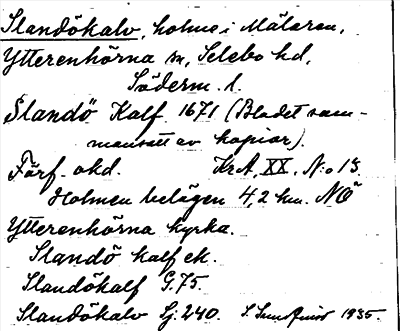 Slandökalv, holme i Mälaren,
Ytterenhörna sn, Selebo hd,
Söderm. l.
Slandö Kalf 1671 (Bladet sam-
mansatt av kopior).
Förf. okd. KrA, XX, No 13.
Holmen belägen 4,2 km. NÖ
Ytterenhörna kyrka.
Slandö kalf ek.
Slandökalf G. 75.
Slandökalv Lj. 240. 1935.